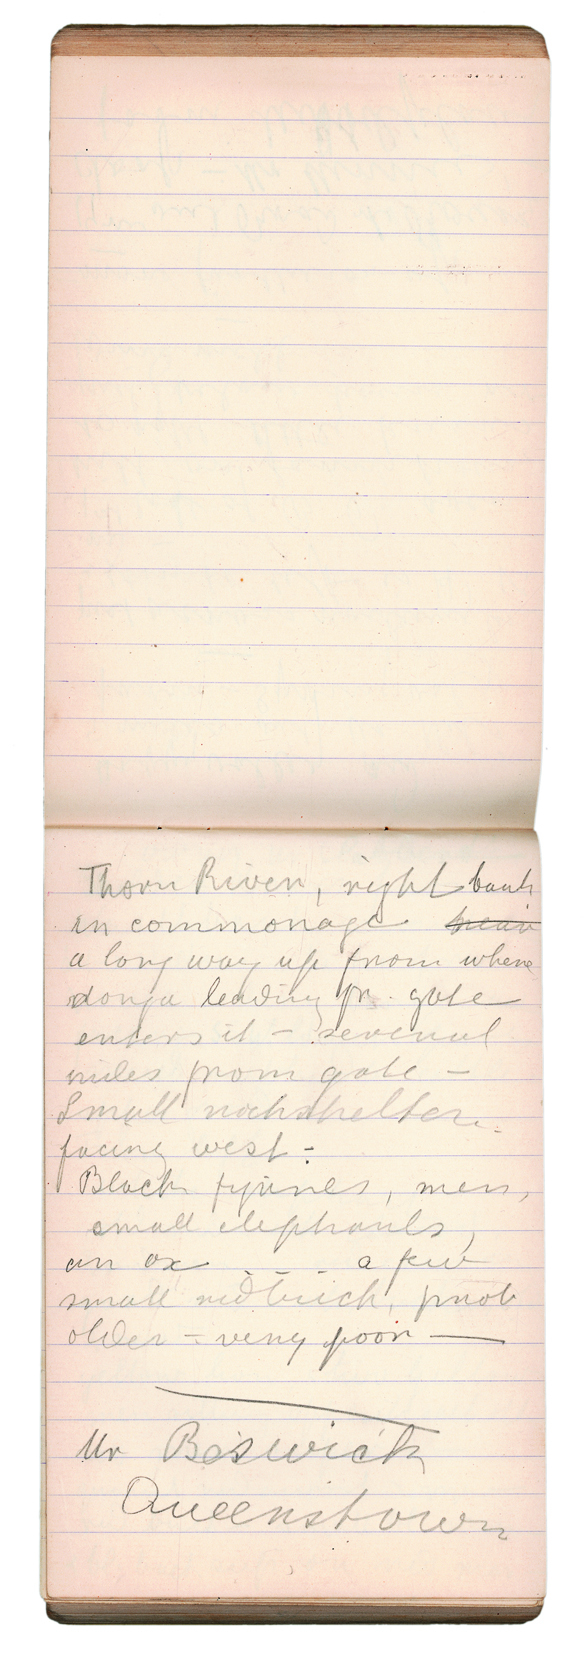 Thorn River, right bank
in commonage near
a long way up from where
donga leading fr. gate
enters it - several
miles from gate -
Small rockshelter.
facing west -
Black figures, men,
small elephants,
an ox - - - a few
small redbuck, prob
older - very poor —
Mr Beswick
Queenstown